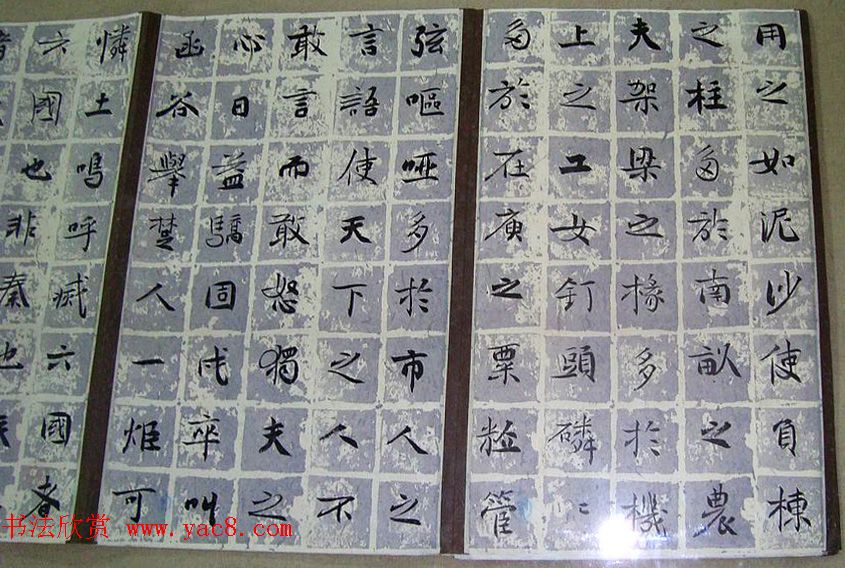 用之如泥沙使負棟
之柱多於南畝之農
夫架梁之椽多於機
上之工女釘頭磷〻
多於在庾之粟粒管
弦嘔啞多於市人之
言語使天下之人不
敢言而敢怒獨夫之
心日益驕固戍卒叫
函谷舉楚人一炬可
憐土嗚呼滅六國者
六國也非秦也
书法欣赏 www.yac8.com